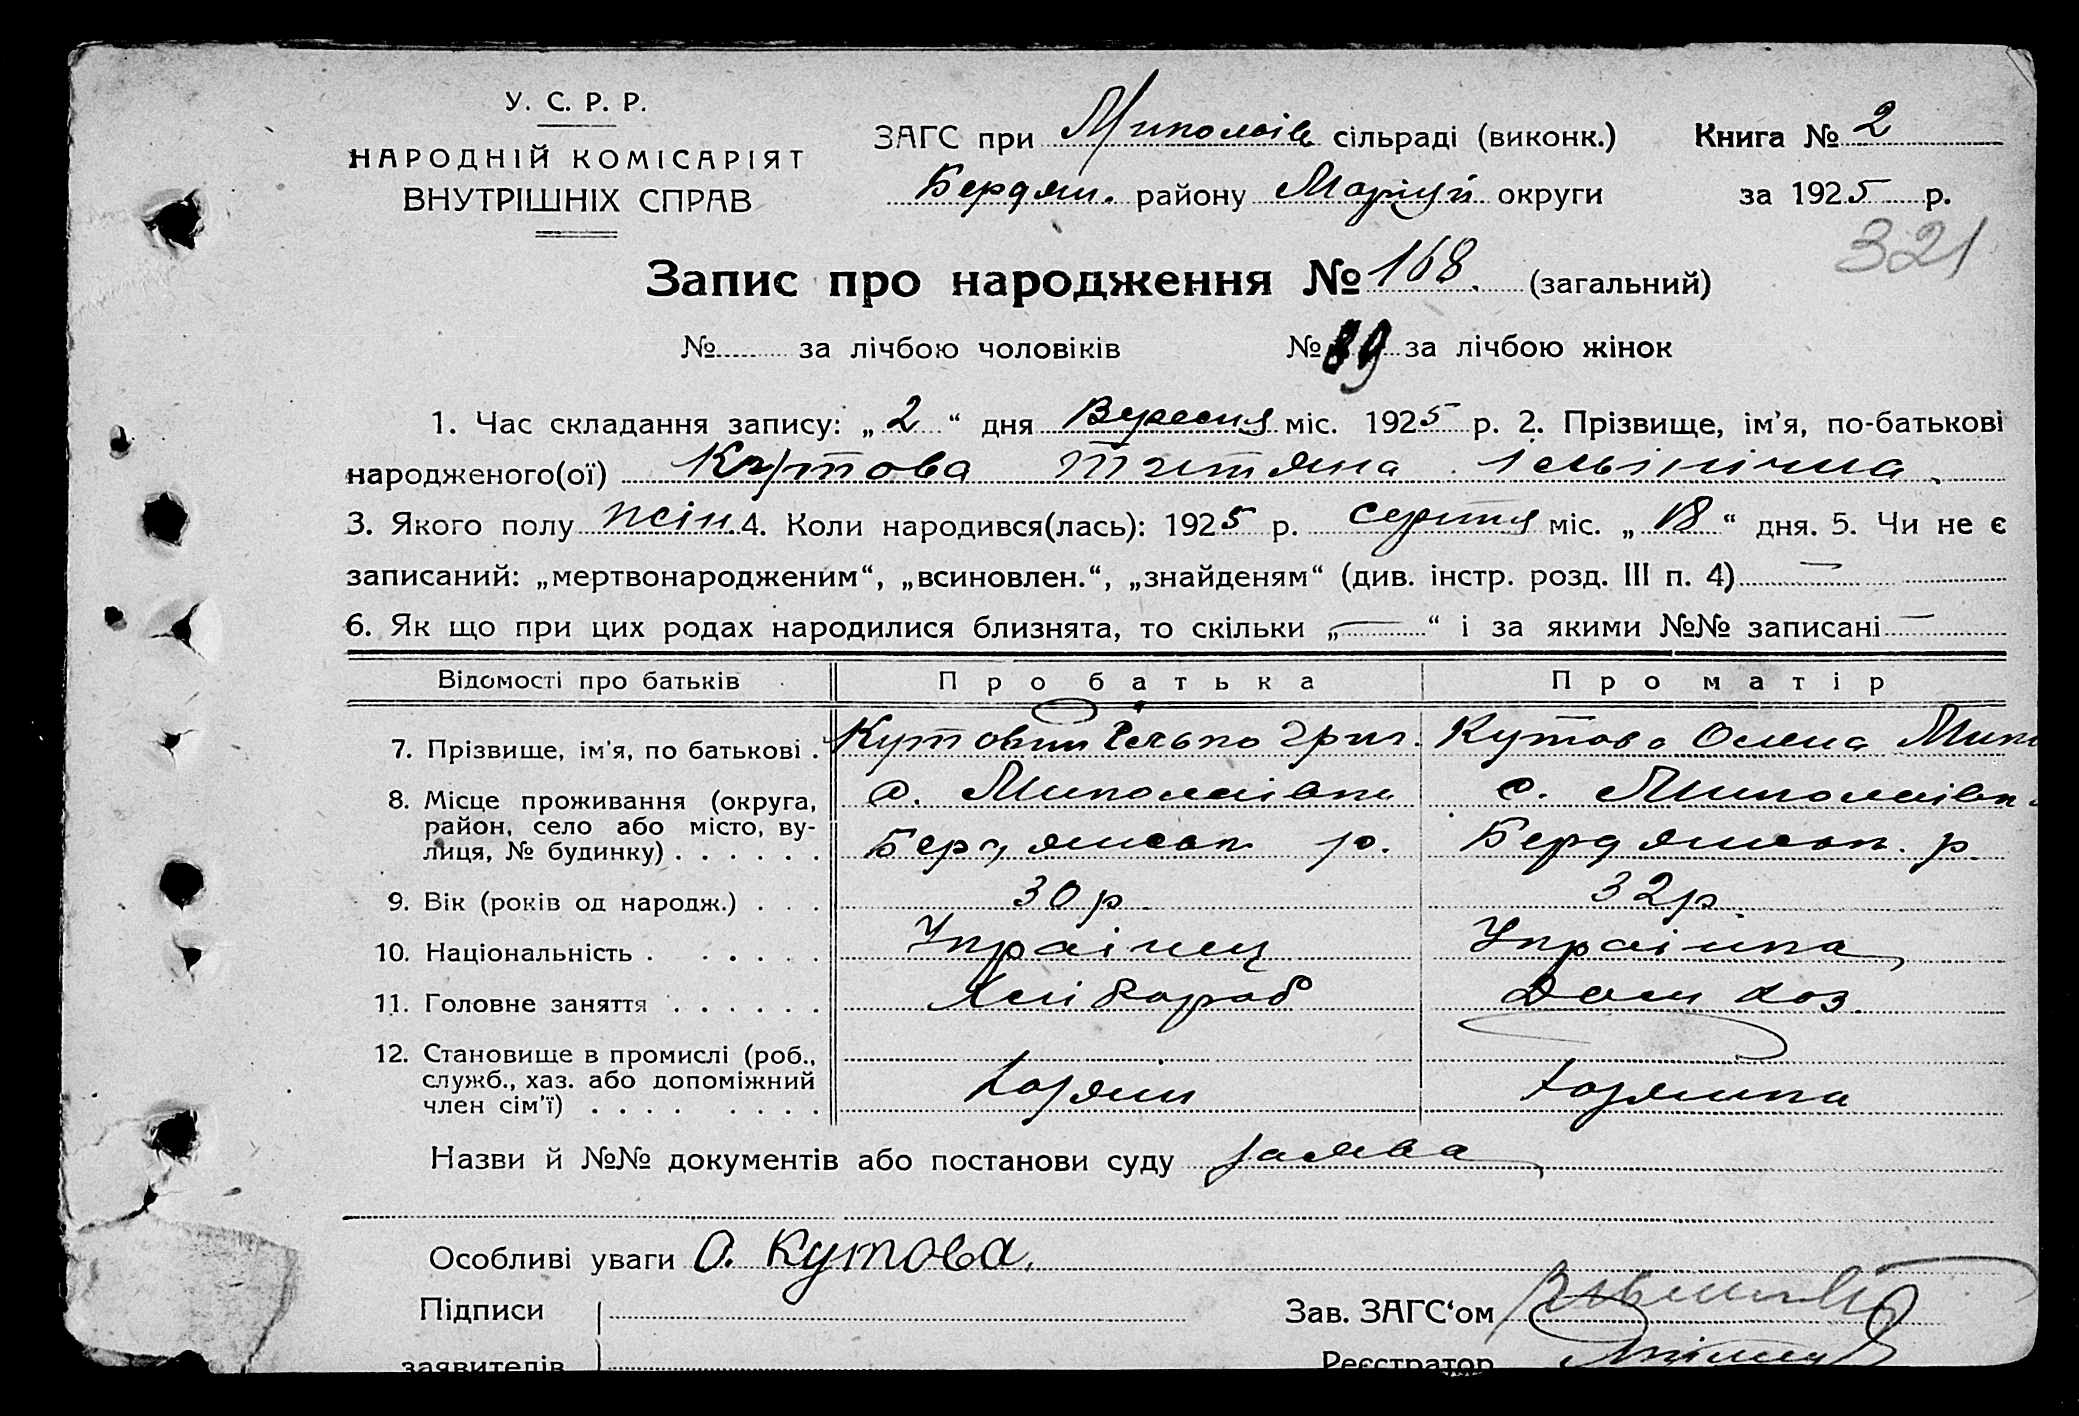 У. С. Р. Р.
НАРОДНІЙ КОМІСАРІЯТ
ВНУТРІШНІХ СПРАВ
ЗАГС при Миколаїв сільраді (виконк.) Книга № 2
Бердян. району Маріуп округи за 1925 р.
321
Запис про народження № 168. (загальний)
№ за лічбою чоловіків № 89 за лічбою жінок
1. Час складання запису: „ 2 “ дня Вересня міс. 1925 р. 2. Прізвище, ім'я, по-батькові
народженого(ої) Кутова Титяна Ільінічна
3. Якого полу жін. 4. Коли народився(лась): 1925 р. серпня міс. „ 18 “ дня. 5. Чи не є
записаний: „мертвонародженим“, „всиновлен.“, „знайденям“ (див. інстр. розд. III п. 4) —
6. Як що при цих родах народилися близнята, то скільки „ — “ і за якими №№ записані —
Відомості про батьків Про батька Про матір
7. Прізвище, ім'я, по батькові . Кутовий Ілько Григ. Кутова Олена Мико
8. Місце проживання (округа, с. Миколаївка с. Миколаївка
район, село або місто, ву-
лиця, № будинку) . . . . . . Бердянськ р. Бердянськ. р.
9. Вік (років од народж.) . . . 30 р. 32 р.
10. Національність . . . . . . Українец Українка
11. Головне заняття . . . . . . Хлібороб Дом хоз.
12. Становище в промислі (роб.,
служб., хаз. або допоміжний Хазяїн Хазяйка
член сім'ї) . . . . . . . .
Назви й №№ документів або постанови суду заява
Особливі уваги О. Кутова.
Підписи Зав. ЗАГС'ом
заявителів Реєстратор